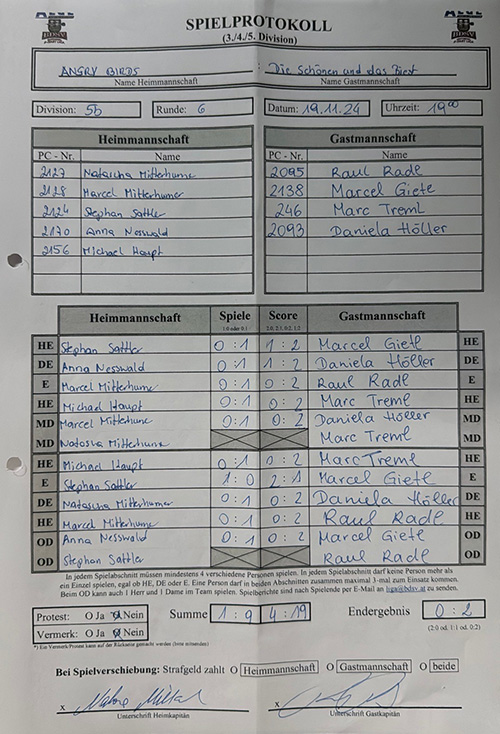 SPIELPROTOKOLL
(3./4./5. Division)
ANGRY BIRDS : Die Schönen und das Biest
Name Heimmannschaft Name Gastmannschaft
Division: 5b Runde: 6 Datum: 19.11.24 Uhrzeit: 19 00
Heimmannschaft Gastmannschaft
PC - Nr. Name PC - Nr. Name
2127 Natascha Mitterhumer 2095 Raul Radl
2128 Marcel Mitterhumer 2138 Marcel Gietl
2124 Stephan Sattler 246 Marc Treml
2170 Anna Nesswald 2093 Daniela Höller
2156 Michael Haupt
Heimmannschaft Spiele Score Gastmannschaft
1:0 oder 0:1 2:0, 2:1, 0:2, 1:2
HE Stephan Sattler 0:1 1:2 Marcel Gietl HE
DE Anna Nesswald 0:1 1:2 Daniela Höller DE
E Marcel Mitterhumer 0:1 0:2 Raul Radl E
HE Michael Haupt 0:1 0:2 Marc Treml HE
MD Marcel Mitterhumer 0:1 0:2 Daniela Höller MD
MD Natascha Mitterhumer Marc Treml MD
HE Michael Haupt 0:1 0:2 Marc Treml HE
E Stephan Sattler 1:0 2:1 Marcel Gietl E
DE Natascha Mitterhumer 0:1 0:2 Daniela Höller DE
HE Marcel Mitterhumer 0:1 0:2 Raul Radl HE
OD Anna Nesswald 0:1 0:2 Marcel Gietl OD
OD Stephan Sattler Raul Radl OD
In jedem Spielabschnitt müssen mindestens 4 verschiedene Personen spielen. In jedem Spielabschnitt darf keine Person mehr als
ein Einzel spielen, egal ob HE, DE oder E. Eine Person darf in beiden Abschnitten zusammen maximal 3-mal zum Einsatz kommen.
Beim OD kann auch 1 Herr und 1 Dame im Team spielen. Spielberichte sind nach Spielende per E-Mail an liga@bdsv.at zu senden.
Protest: O Ja O Nein Summe 1:9 4:19 Endergebnis 0:2
Vermerk: O Ja O Nein (2:0 od. 1:1 od. 0:2)
*) Ein Vermerk/Protest kann auf der Rückseite gemacht werden (bitte ankreuzen)
Bei Spielverschiebung: Strafgeld zahlt O Heimmannschaft O Gastmannschaft O beide
x x
Unterschrift Heimkapitän Unterschrift Gastkapitän